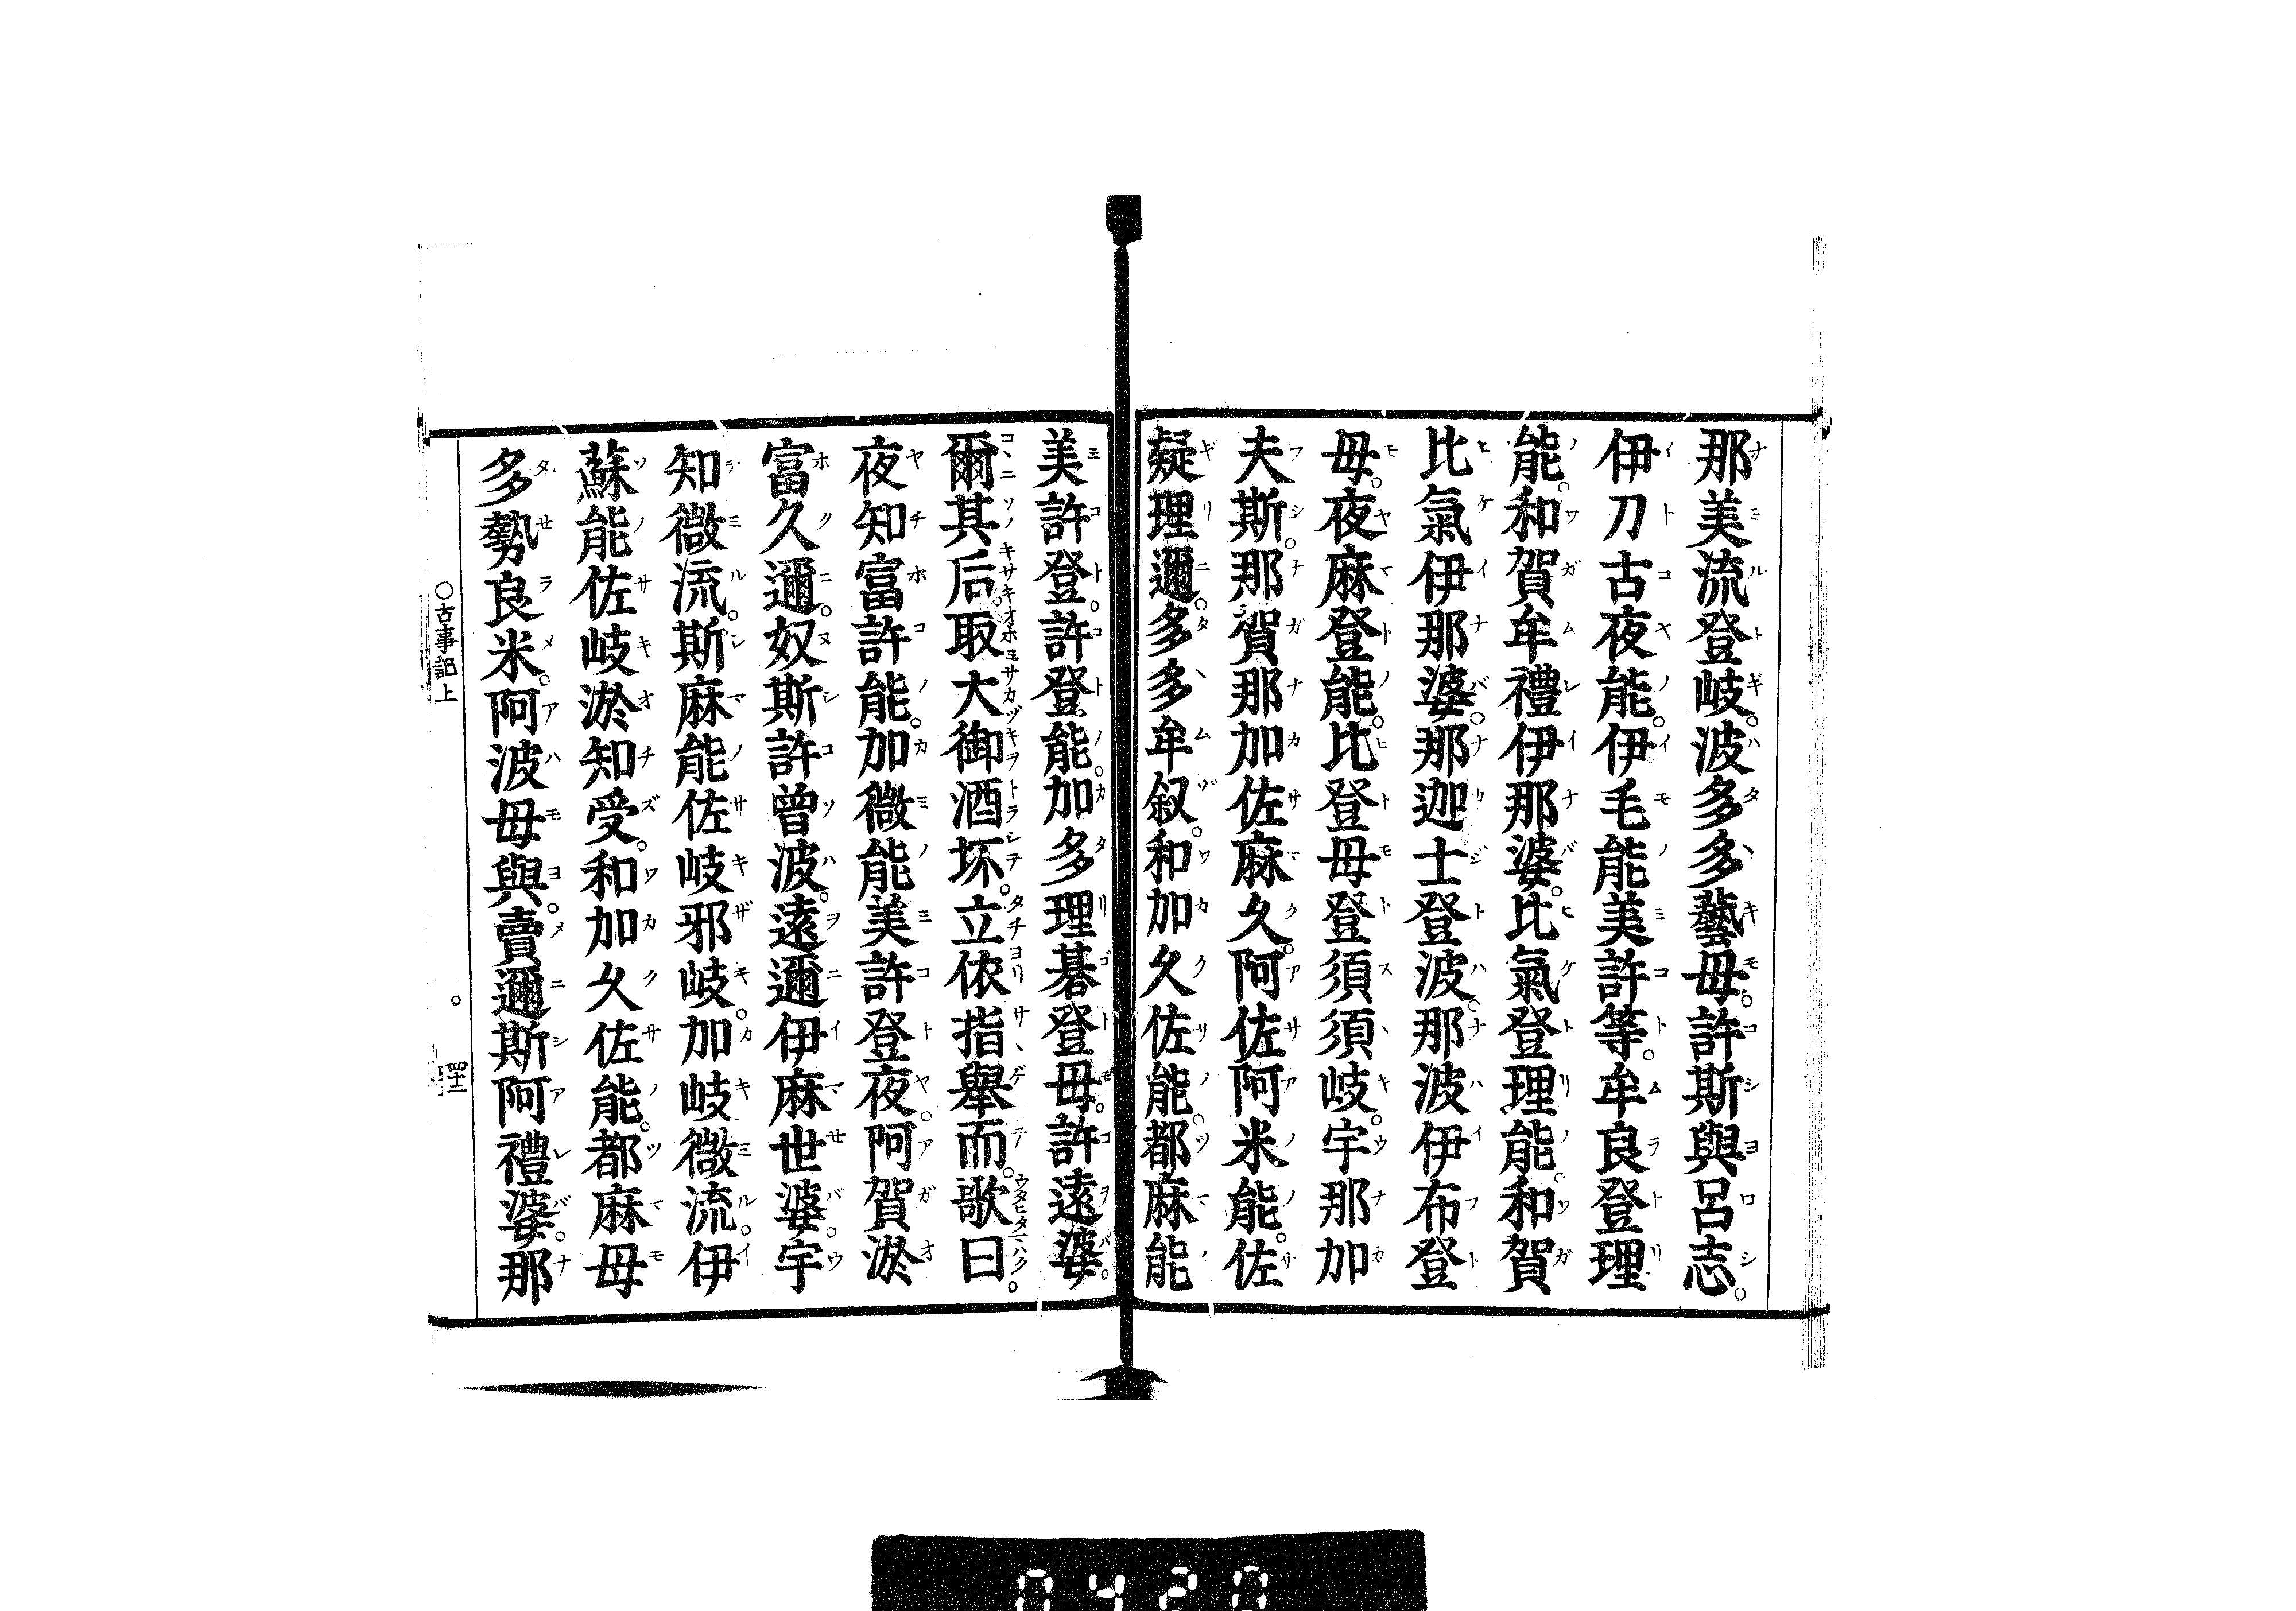 那美流登岐。波多多藝毋。許斯與呂志。
伊刀古夜能。伊毛能美許等。牟良登理
能。和賀牟禮伊那婆。比氣登理能。和賀
比氣伊那婆。那迦士登波。那波伊布登
毋。夜麻登能。比登毋登須須岐。宇那加
夫斯。那賀那加佐麻久。阿佐阿米能。佐
疑理邇。多多牟叙。和加久佐能。都麻能
美許登。許登能。加多理碁登毋。許遠婆。
爾其后。取大御酒坏。立依指擧而。歌曰。
夜知富許能。加微能美許登夜。阿賀淤
富久邇。奴斯許曾波。遠邇伊麻世婆。宇
知微流。斯麻能佐岐邪岐。加岐微流。伊
蘇能佐岐淤知受。和加久佐能。都麻母
多勢良米。阿波毋與。賣邇斯阿禮婆。那
○古事記上
四十二
0420